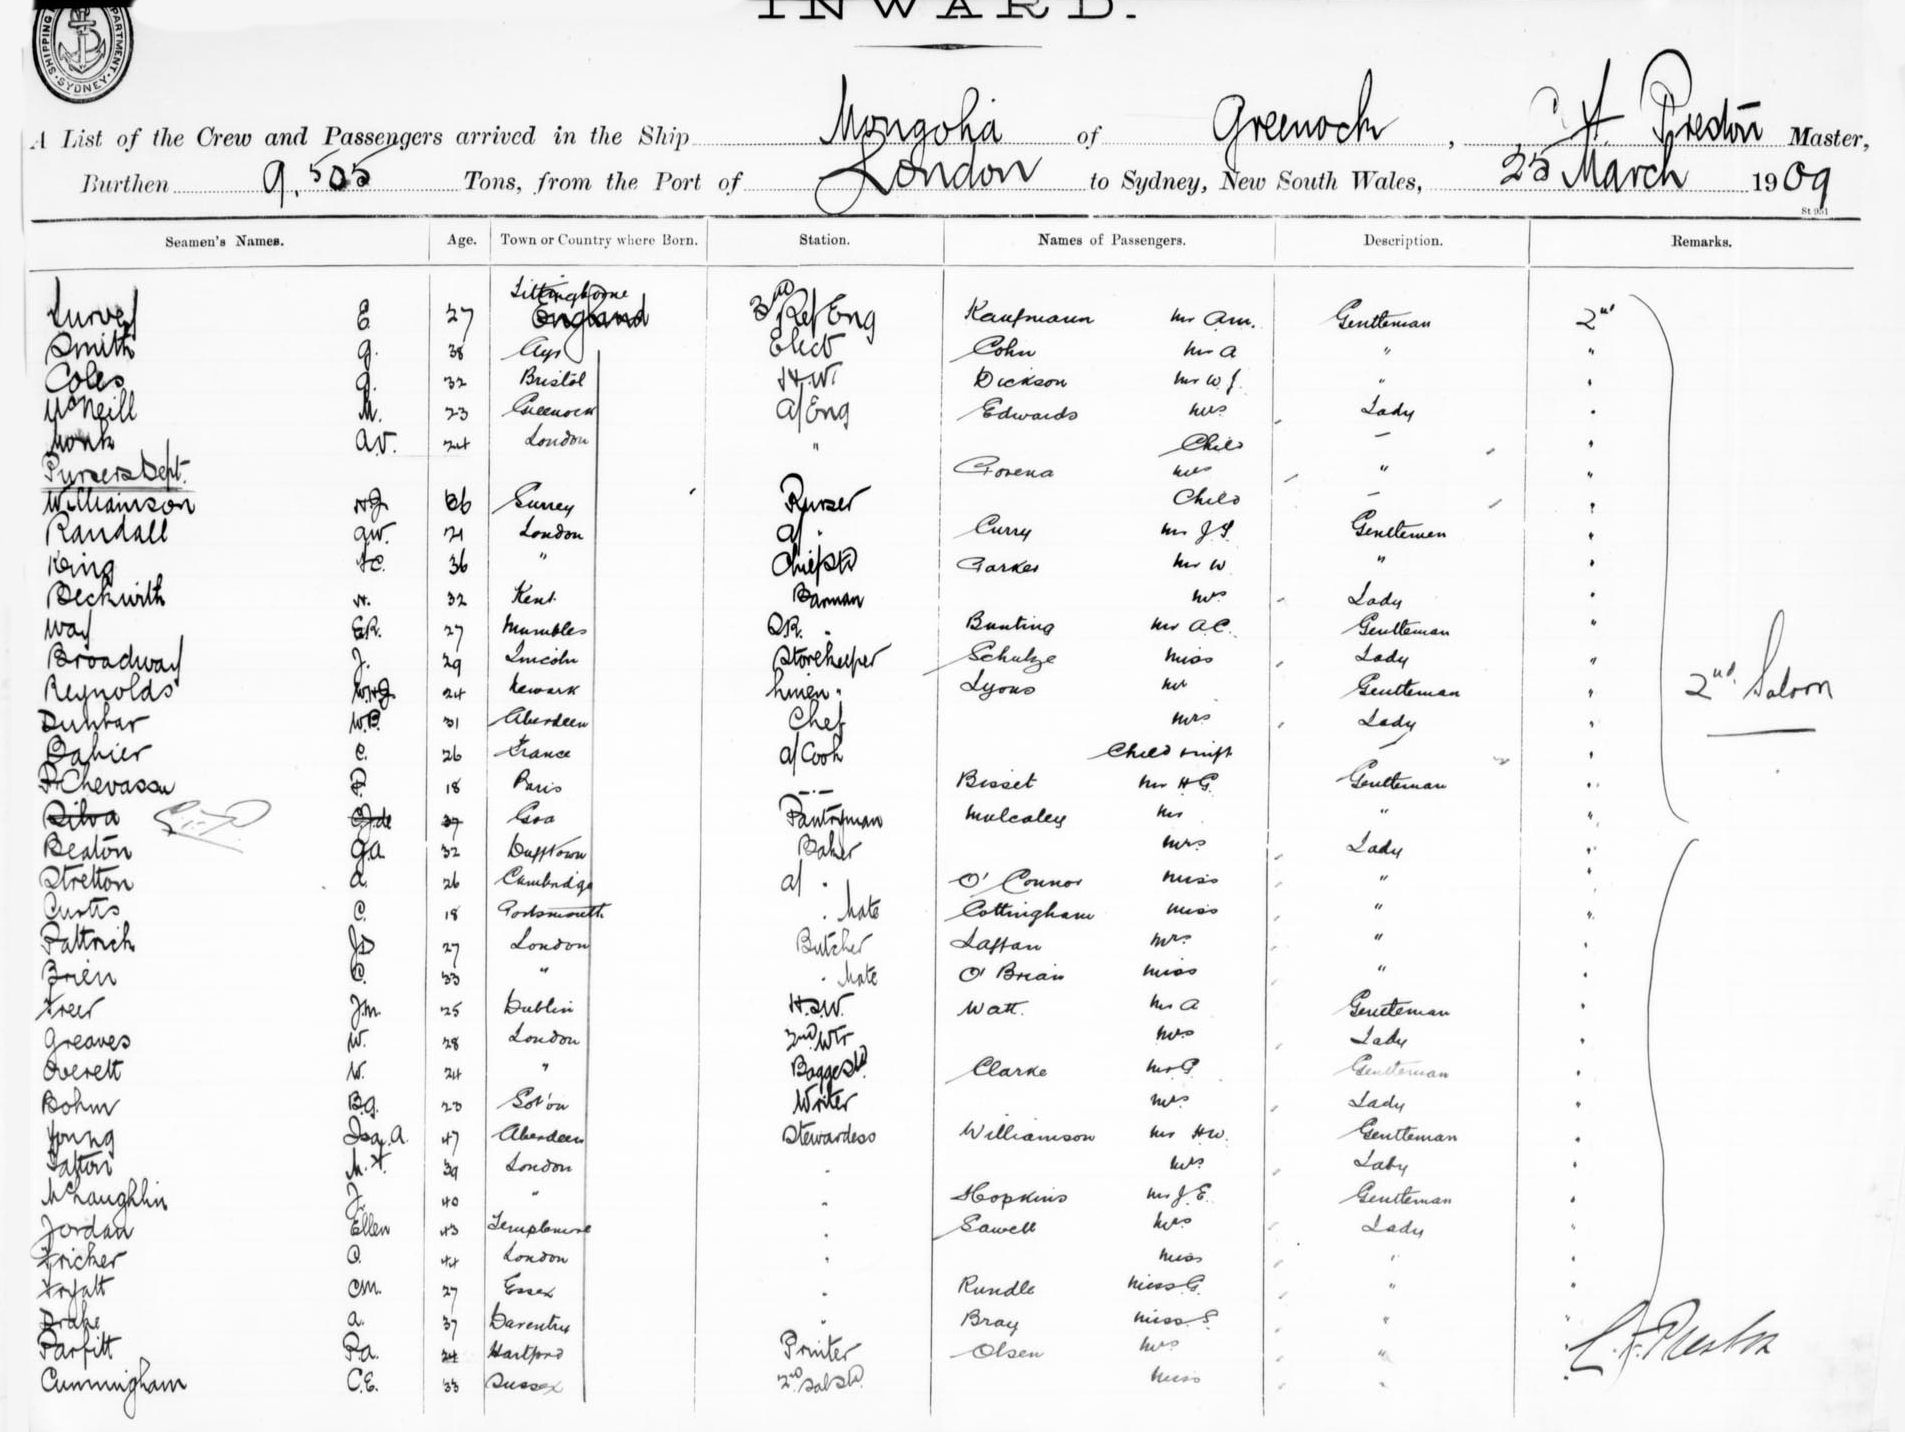 SHIPPING DEPARTMENT SYDNEY
INWARD.
A List of the Crew and Passengers arrived in the Ship Mongolia of Greenock, A Preston Master,
Burthen 9,505 Tons, from the Port of London to Sydney, New South Wales, 25 March 1909
Seamen's Names. Age. Town or Country where Born. Station. Names of Passengers. Description. Remarks.
Sittingborne
E. 27 England 3rd Ref Eng Kaufmann Mr Am. Gentleman 2nd
Smith G. 38 Elect Cohn Mr A " "
Coles G. 32 Bristol Dickson Mr W J. " "
McNeill M. 23 Greenock a/Eng Edwards Mrs Lady "
Monk A.V. 24 London " Child — "
Pursers Dept. Mrs " "
Williamson 36 Surrey Purser Child — "
Randall GW. 21 London a/ " Curry Mr J.S. Gentlemen "
King 36 " Chief Std Parker Mr W " "
Beckwith H. 32 Kent Barman Mrs Lady "
Way E.R. 27 Mumbles Bunting Mr A.C. Gentleman "
Broadway J. 29 Lincoln Storekeeper Schulze Miss Lady "
Reynolds 24 Newark Linen " Lyons Mr Gentleman "
Dunbar W.P. 31 Aberdeen Chef Mrs Lady "
C. 26 France a/Cook Child "
P. 18 Paris — " — Bisset Mr H G. Gentleman "
Silva 37 Goa Pantryman Mulcaley Mr " "
Beaton G.A 32 Dufftown Baker Mrs Lady "
Stretton A. 26 Cambridge a/ " O'Connor Miss " "
Curtis C. 18 Portsmouth " Mate Cottingham Miss " "
Pattrick JD 27 London Butcher Laffan Mrs " "
Brien C. 33 " " Mate O'Brian Miss " "
Freer J.M. 25 Dublin Watt. Mr A Gentleman "
Greaves W. 28 London 2nd Wtr Mrs Lady "
Overett W. 24 " Bagge Std. Clarke Gentleman "
Bohm B.G. 23 Sot'on Writer Mrs Lady "
Young Isa. A. 47 Aberdeen Stewardess Williamson Mr HW. Gentleman "
39 London " Mrs Lady "
McLaughlin J. 40 " " Hopkins Mr J.E. Gentleman "
Jordan Ellen 43 Templemore " Sawell Mrs Lady "
Fricker C. 44 London " Miss " "
CM. 27 Essex " Rundle Miss G. " "
Drake A. 37 Daventry " Bray Miss S. " "
Parfitt 24 Hartford Printer Olsen Mrs " "
Cunningham C.E. 33 Sussex 2nd Sal Std. Miss " "
2nd Saloon